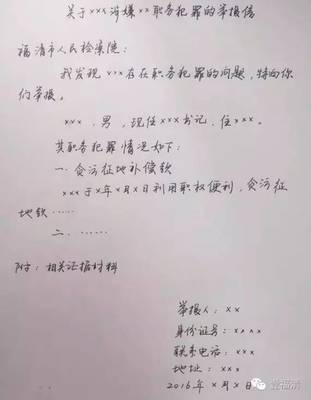 关于×××涉嫌××职务犯罪的举报信
福清市人民检察院：
我发现×××存在职务犯罪的问题，特向你
们举报。
×××，男，现任×××书记，住×××。
其职务犯罪情况如下：
一、贪污征地补偿款
×××于×年×月×日利用职权便利，贪污征
地款……
二、……
附：相关证据材料
举报人：××
身份证号：××××
联系电话：×××
地址：×××
2016年×月×日